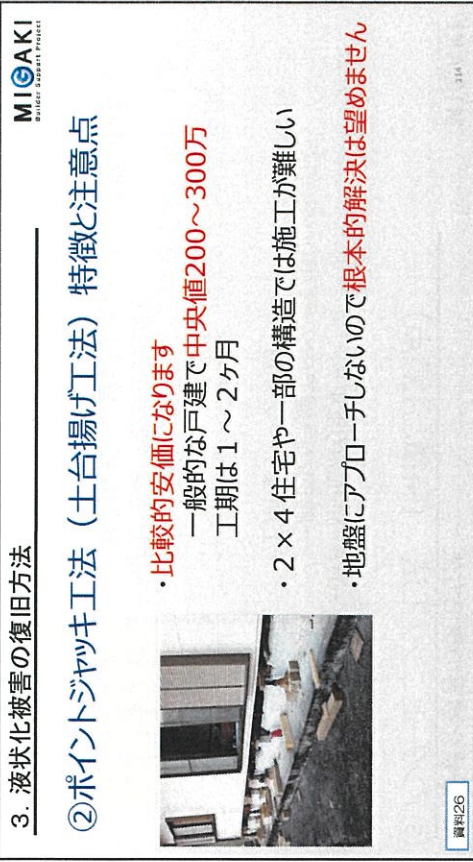 3. 液状化被害の復旧方法
MIGAKI
Builder Support Project
②ポイントジャッキ工法（土台揚げ工法）特徴と注意点
・比較的安価になります
一般的な戸建で中央値200～300万
工期は１～２ヶ月
・２×４住宅や一部の構造では施工が難しい
・地盤にアプローチしないので根本的解決は望めません
資料26
114